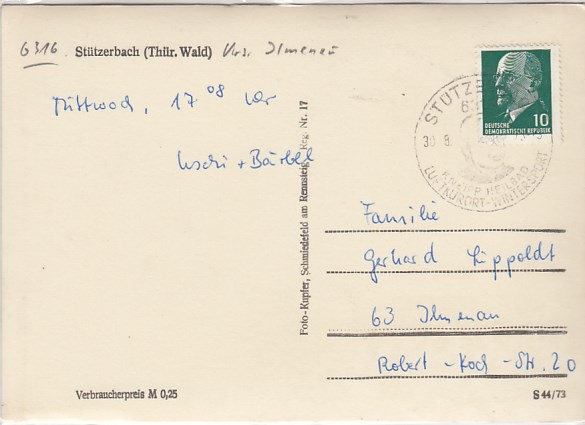 6316 Stützerbach (Thür. Wald) Krs. Ilmenau
Mittwoch, 17 08 Uhr
Uschi + Bärbel
Foto-Kupfer, Schmiedefeld am Rennsteig Reg. Nr. 17
DEUTSCHE 10
DEMOKRATISCHE REPUBLIK
STÜTZE
30. 8.
KNEIPP-HEILBAD
LUFTKURORT-WINTERSPORT
Familie
Gerhard Lippoldt
63 Ilmenau
Robert-Koch-Str. 20
Verbraucherpreis M 0,25
S 44/73